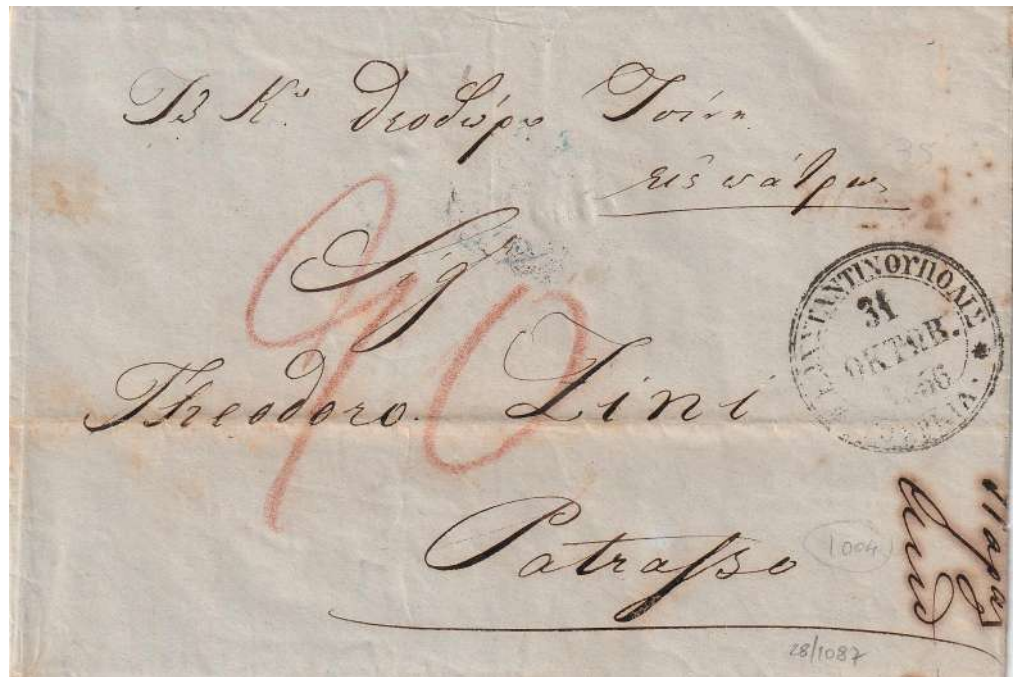 Τῷ Κῳ Θεοδώρῳ Τσίνη
εἰς Πάτρας
Sigr
Theodoro Zini
Patrasso
90
ΚΩΝΣΤΑΝΤΙΝΟΥΠΟΛΙΣ
31
ΟΚΤΩΒ.
ΤΟΥΡΚΙΑ.
1004
28/1087